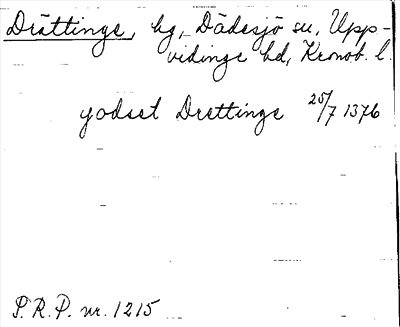 Drättinge, hg, Dädesjö sn, Upp-
vidinge hd, Kronob. l.
godset Drettinge 25/7 1376
S.R.P. nr. 1215